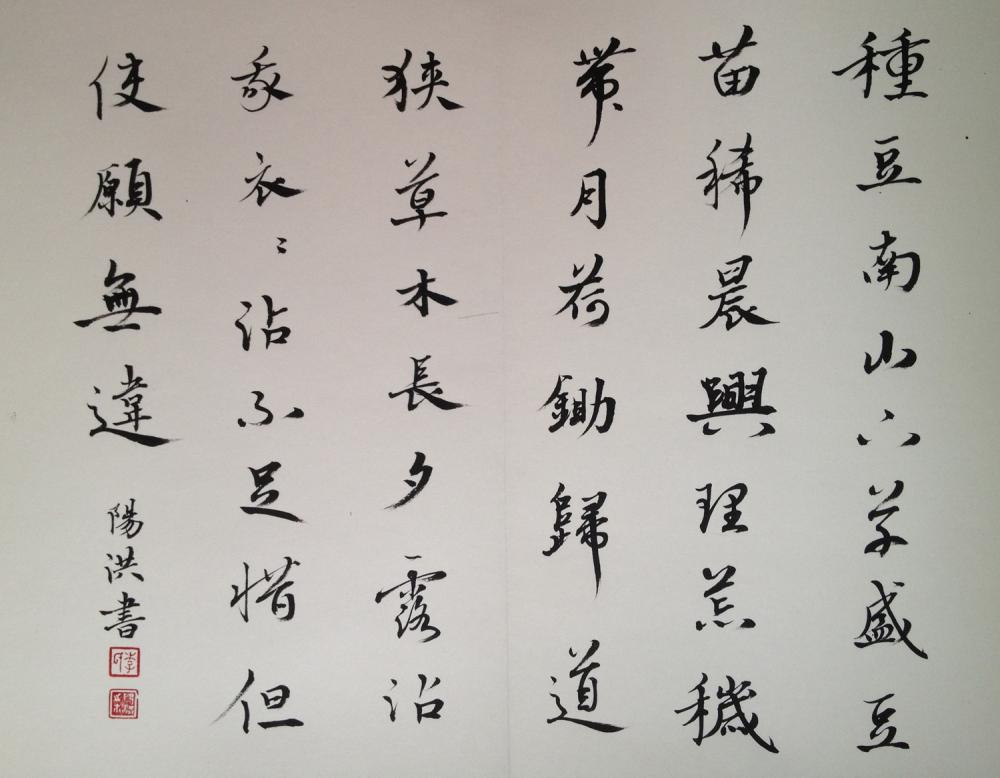 種豆南山下草盛豆
苗稀晨興理荒穢
帶月荷鋤歸道
狹草木長夕露沾
我衣〻沾不足惜但
使願無違
陽洪書